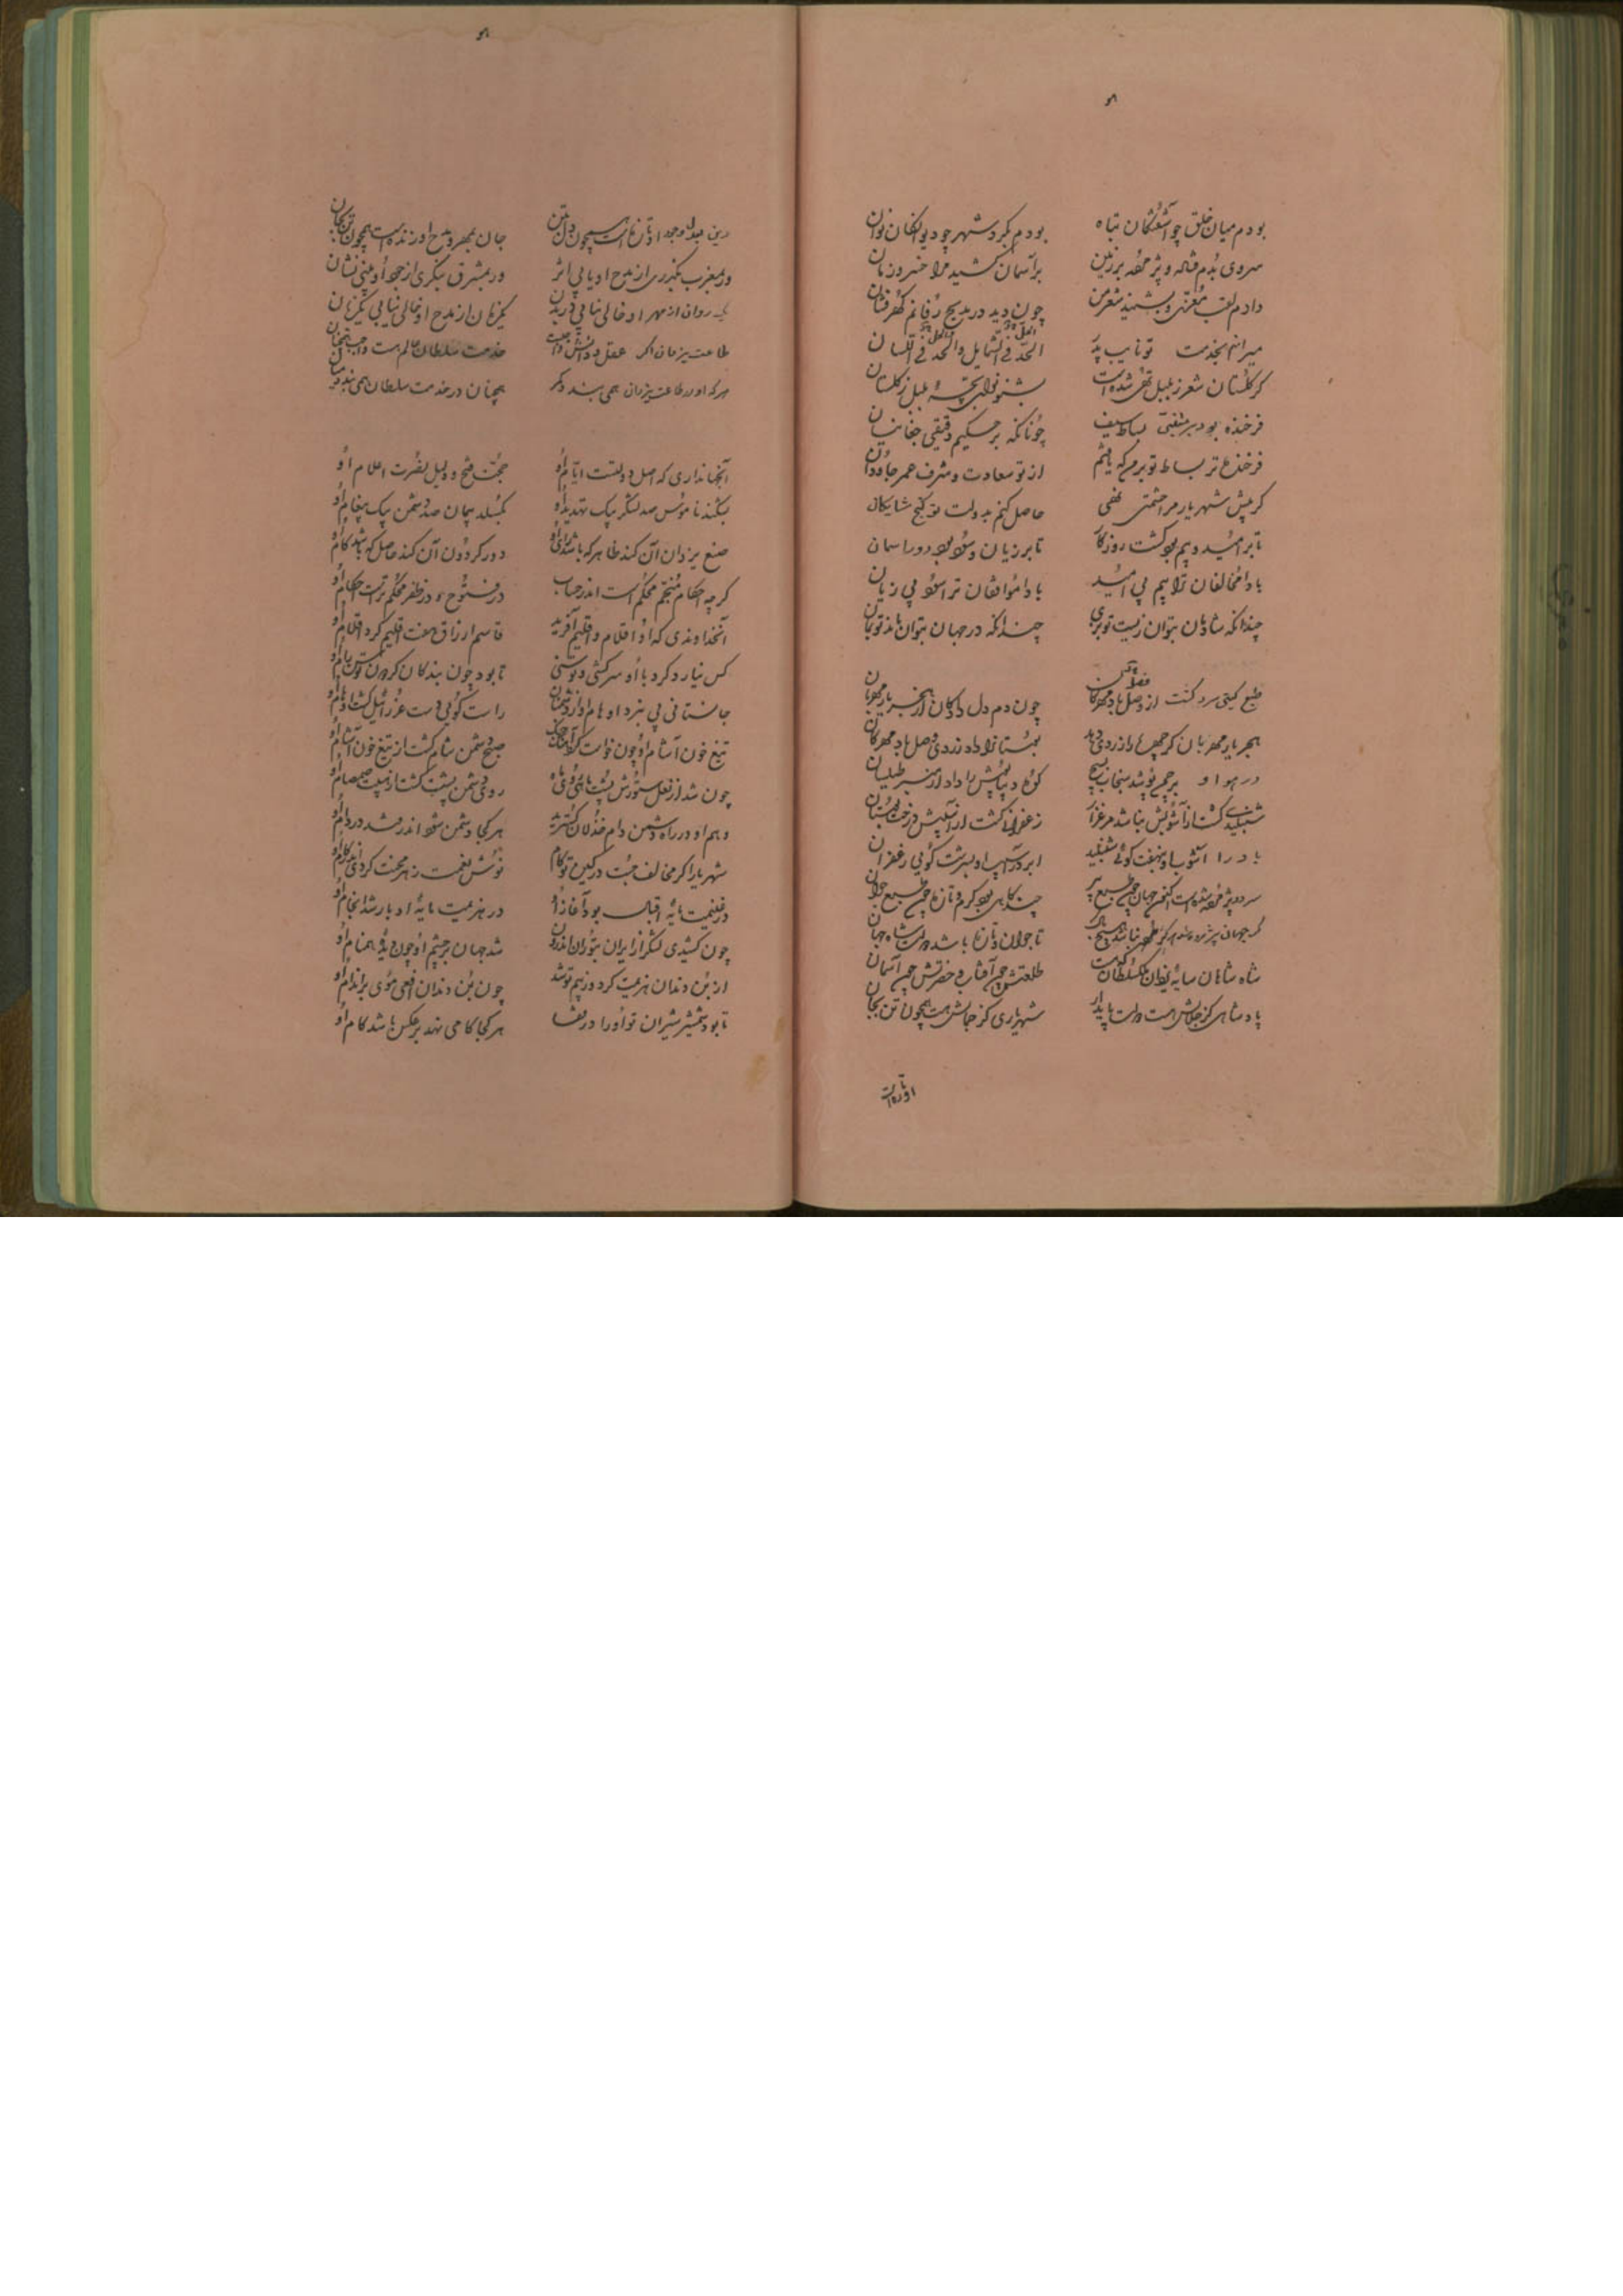 بودم میان خلق چو آشفتگان تباه بودم بگرد شهر چو دیوانگان نوان
سروی بدم فتاده و پژمرده بر زمین بر آسمان کشید مرا خسرو زمان
دادم لقب معزی و بشنید شعر من چون دید در مدیح زفانم گهرفشان
میرانم بخدمت تو نایب پدر
گر گلستان شعر ز بلبل تهی شده است بشنو نوای بچهٔ بلبل ز گلستان
فرخنده بود بر متنبی بساط سیف چونانکه بر حکیم دقیقی چغانیان
فرخنده‌تر بساط تو بر من که یافتم از تو سعادت و شرف عمر جاودان
گر پیش شهریار مرا حشمتی نهی حاصل کنم بدولت تو گنج شایگان
تا بر امید و بیم بود گشت روزگار تا بر زیان و سود بود دور آسمان
بادا مخالفان ترا بیم بی امید بادا موافقان ترا سود بی زیان
چندانکه شادمان بتوان زیست تو بزی چندانکه در جهان بتوان ماند تو بمان
طبع گیتی سرد گشت از وصل باد مهرگان چون دم دلدادگان از هجر یار مهربان
هجر یار مهربان گر چهره را زردی دهد بوستانرا داد زردی وصل باد مهرگان
در هوا او
کوه دیباپوش را داد از
شنبلیدی گشت از آشوبش بناشد مرغزار زعفرانی گشت از آسیبش درخت بوستان
باد را آشوب او بنهفت گوئی شنبلید ابر در آسیب او بسرشت گویی زعفران
سرد و پژمرده شده است اکنون جهان چون طبع پیر چندگاهی بود گرم و تازه چون طبع جوان
گر جهان پژمرده شد هرگز نباشد هیچ باک تا جوان و تازه باشد دولت شاه جهان
شاه شاهان سایهٔ یزدان ملکسلطان که هست طلعتش چون آفتاب و حضرتش چون آسمان
پادشاهی کز جلالش هست دولت پایدار شهریاری کز جمالش هست همچون تن بجان
دین بعدل و جود او تازه است همچون دل بتن جان بمهر و مدح او زنده است همچون تن بجان
ور بمغرب بگذری از مدح او یابی اثر ور بمشرق بنگری از جود او بینی نشان
یک روان از مهر او خالی نیابی در بدن یکزبان از مدح او خالی نیابی یکزمان
طاعت یزدان اگر عقل و دانش واجبست خدمت سلطان عالم هست واجب همچنان
هر که او در طاعت یزدان همی بندد کمر همچنان در خدمت سلطان همی بندد میان
آنجهانداری که اصل دولتست ایام او حجت فتح و دلیل نصرت اعلام او
بشکند ناموس صد لشکر بیک تهدید او بگسلد پیمان صد دشمن بیک پیغام او
صنع یزدان آن کند ظاهر که باشد رای او دور گردون آن کند حاصل که باشد کام او
گرچه احکام منجم محکم است اندر حساب در فتوح و در ظفر محکمتر است احکام او
آنخداوندی که او اقلام و اقلیم آفرید قاسم ارزاق هفت اقلیم کرد اقلام او
کس نیارد کرد با او سرکشی و توسنی تا بود چون بندگان گردون توسن رام او
جانستانی پی برد اوهام او از دشمنان راست گویی دست عزرائیل گشت اوهام او
تیغ خون آشام او چون خواست کرد آهنگ جنگ صبح دشمن شام گشت از تیغ خون آشام او
چون شد از نعل ستورش پشت ماهی روی ماه روی دشمن پشت گشت از هیبت صمصام او
وهم او در راه دشمن دام خذلان گسترید هر کجا دشمن شود اندر فتد در دام او
شهریارا گر مخالف جست در کین تو کام نوش نعمت زهر محنت کردی اندر کام او
در غنیمت مایهٔ اقبال بود آغاز او در هزیمت مایهٔ ادبار شد انجام او
چون کشیدی لشکر از ایران بتوران اندرون شد جهان بر چشم او چون دیدهٔ همنام او
از بن دندان هزیمت کرد و ز بیم تو شد چون بن دندان افعی موی بر اندام او
تا بود شمشیر شیران تو او را در قفا هر کجا گامی نهد بر عکس باشد کام او